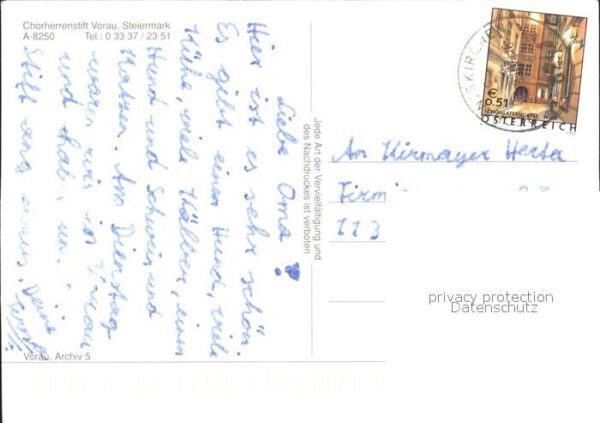 Chorherrenstift Vorau, Steiermark
A-8250 Tel.: 0 33 37 / 23 51
Liebe Oma!
Hier ist es sehr schön.
Es gibt einen Hund, viele
Kühe, viele Kälber, einen
Hund und Schwein und
Katzen. Am Dienstag
waren wir in Vorau
und haben
Stift
Vorau, Archiv 5
Jede Art der Vervielfältigung und
des Nachdruckes ist verboten
€
0.51
ÖSTERREICH
An Kirmayer Herta
113
privacy protection
Datenschutz